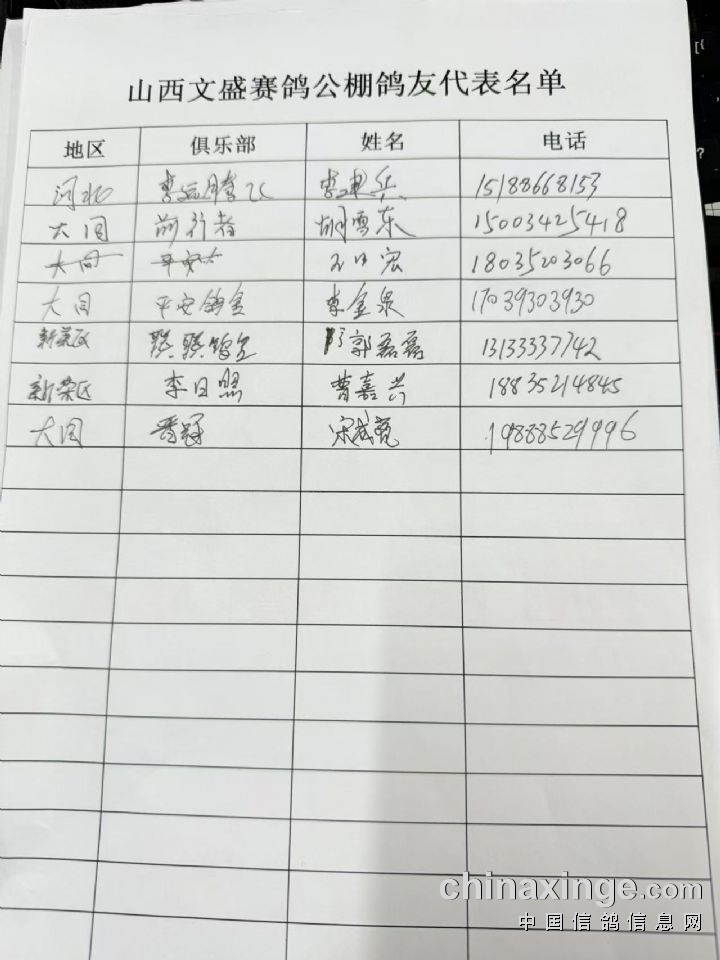 山西文盛赛鸽公棚鸽友代表名单
地区 俱乐部 姓名 电话
河北 李 腾飞 李建兵 15188668153
大同 前行者 胡雪东 15003425418
大同 平安 宏 18035203066
大同 平安鸽舍 李金泉 17039303930
新荣区 郭磊磊 13133337742
新荣区 李日照 曹嘉兴 18835214845
大同 晋冠 宋 19888529996
chinaxinge.com
中国信鸽信息网